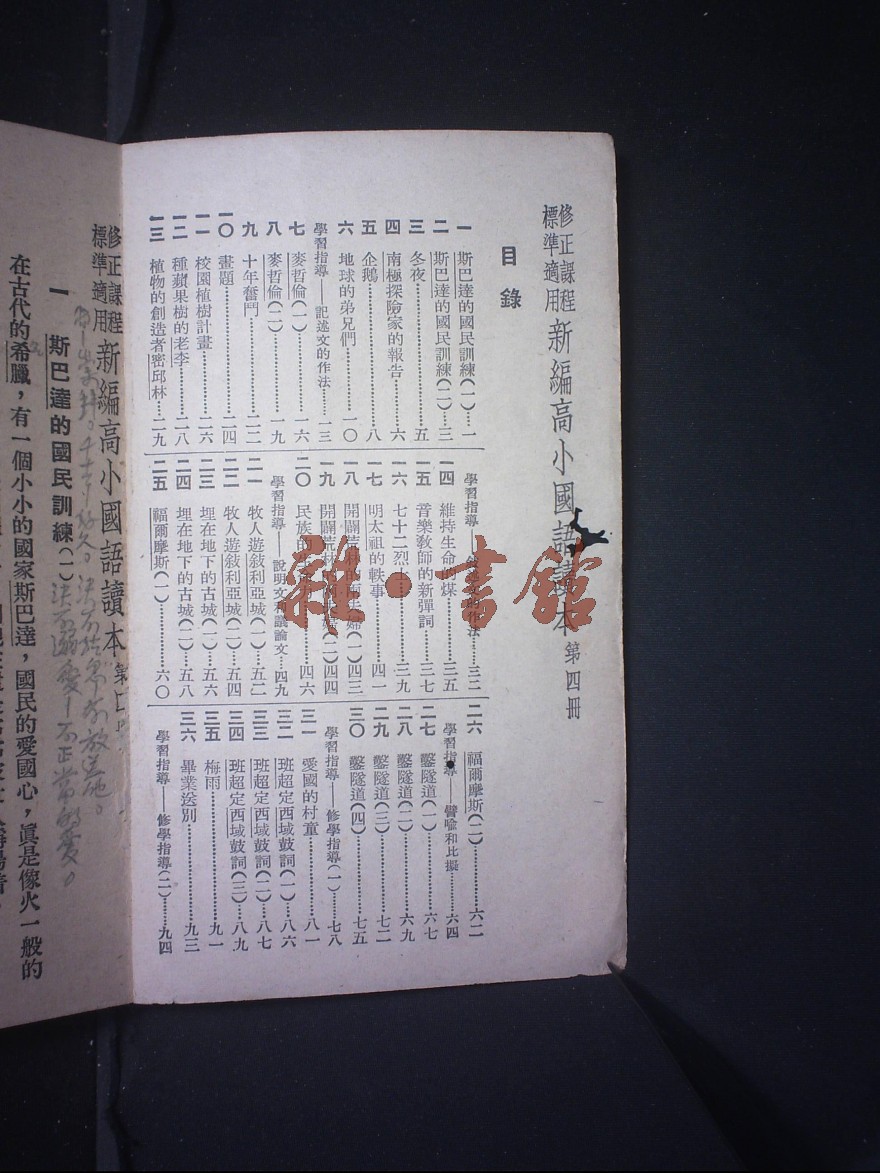 修正課程
標準適用
新編高小國語讀本 第四冊
目錄
一 斯巴達的國民訓練(一)……一
二 斯巴達的國民訓練(二)……三
三 冬夜……五
四 南極探險家的報告……六
五 企鵝……八
六 地球的弟兄們……一〇
學習指導——記述文的作法……一三
七 麥哲倫(一)……一六
八 麥哲倫(二)……一九
九 十年奮鬥……二二
一〇 畫題……二四
一一 校園植樹計畫……二六
一二 種蘋果樹的老李……二八
一三 植物的創造者密邱林……二九
學習指導——文的作法……三二
一四 維持生命的煤……三五
一五 音樂教師的新彈詞……三七
一六 七十二烈士……三九
一七 明太祖的軼事……四一
一八 開闢荒林的夫婦(一)……四三
一九 開闢荒林的夫婦(二)……四四
二〇 民族的……四六
學習指導——說明文和議論文……四九
二一 牧人遊敍利亞城(一)……五二
二二 牧人遊敍利亞城(二)……五四
二三 埋在地下的古城(一)……五六
二四 埋在地下的古城(二)……五八
二五 福爾摩斯(一)……六〇
二六 福爾摩斯(二)……六二
學習指導——譬喻和比擬……六四
二七 鑿隧道(一)……六七
二八 鑿隧道(二)……六九
二九 鑿隧道(三)……七二
三〇 鑿隧道(四)……七五
學習指導——修學指導(一)……七八
三一 愛國的村童……八一
三二 班超定西域鼓詞(一)……八六
三三 班超定西域鼓詞(二)……八七
三四 班超定西域鼓詞(三)……八九
三五 梅雨……九一
三六 畢業送別……九三
學習指導——修學指導(二)……九四
修正課程
標準適用
新編高小國語讀本 第
一 斯巴達的國民訓練(一)
在古代的希臘，有一個小小的國家斯巴達，國民的愛國心，眞是像火一般的
雜·書館